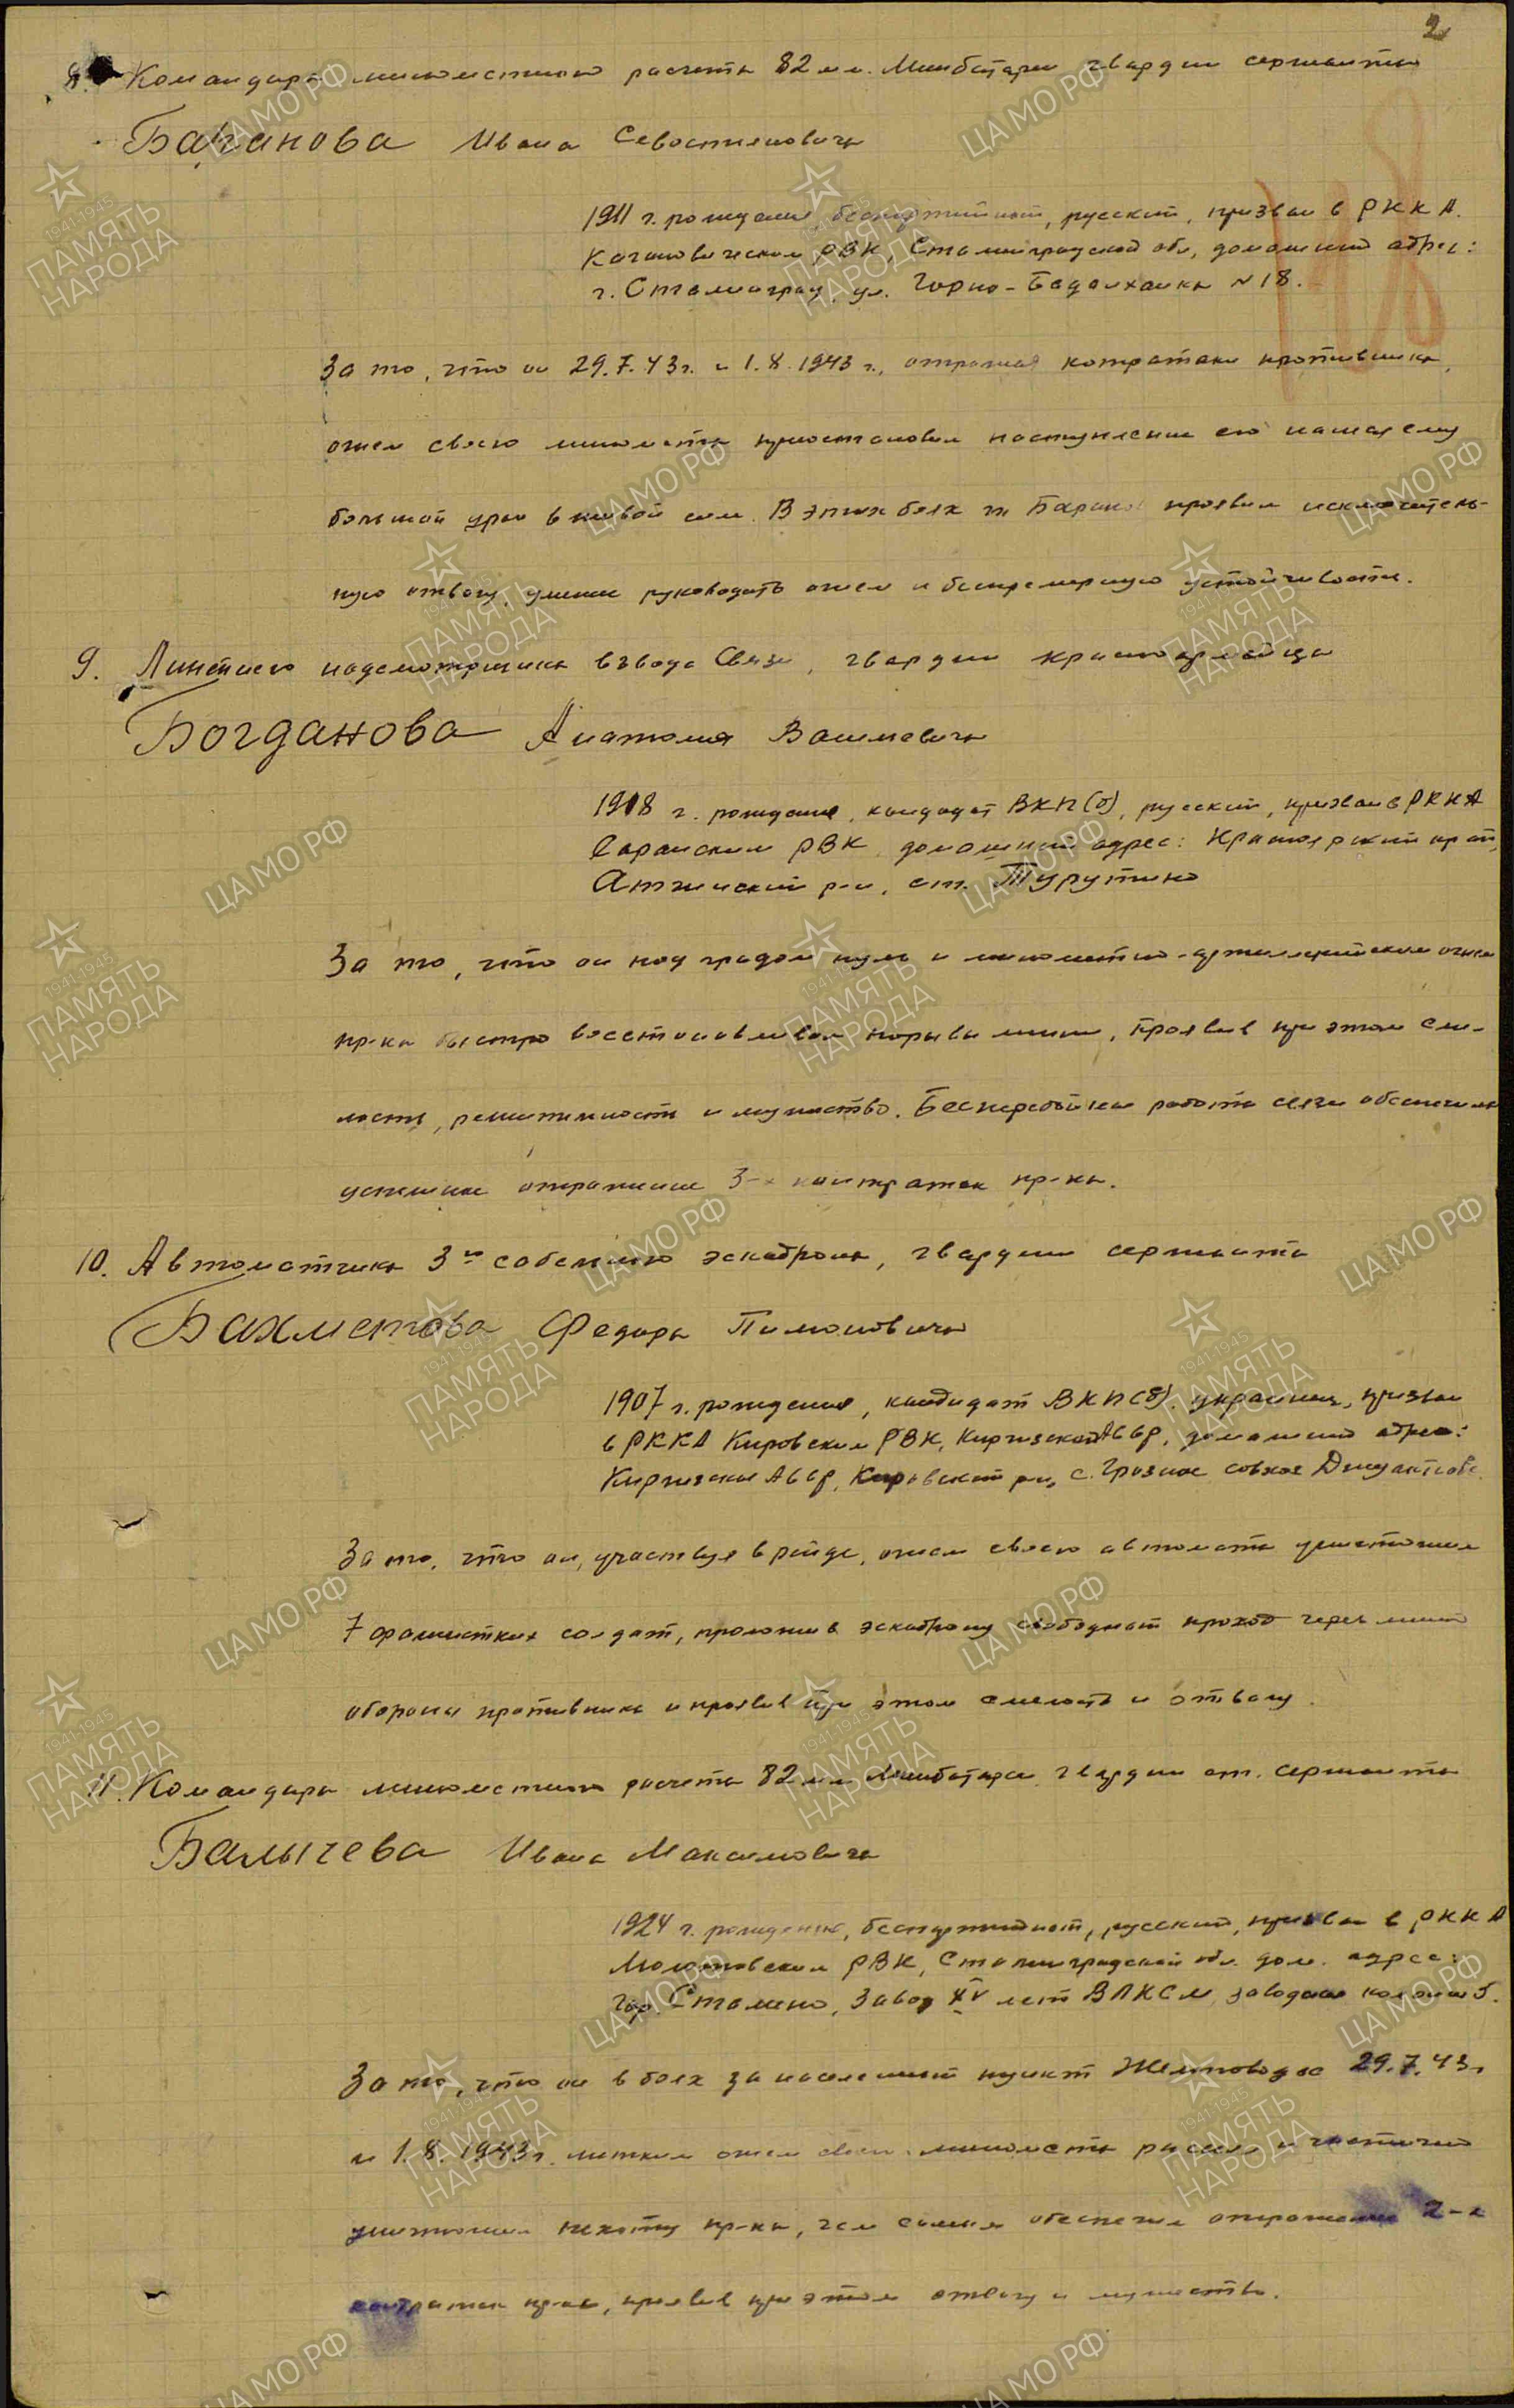 2
8. Командира минометного расчета 82 мм. Минбатареи гвардии сержанта
Баранова Ивана Севостияновича
1911 г. рождения, беспартийный, русский, призван в РККА.
Кагановическим РВК, Сталинградской обл, домашний адрес:
г. Сталинград, ул. Горно-Бадахшанка №18.
За то, что он 29.7.43г. и 1.8.1943 г., отражая контратаки противника,
огнем своего миномета приостановил наступление его нанося ему
большой урон в живой силе. В этих боях тт Баранов проявил исключитель-
ную отвагу, умение руководить огнем и беспремерную устойчивость.
9. Линейного надсмотрщика взвода Связи, гвардии красноармейца
Богданова Анатолия
1918 г. рождения, кандидат ВКП(б), русский, призван в РККА
РВК, домашний адрес: Красноярский край,
Ачинский р-н, ст. Турутино
За то, что он под градом пуль и минометно-артиллерийским огнем
пр-ка быстро восстанавливал порывы линии, проявив при этом сме-
лость, решительность и мужество. Бесперебойная работа связи обеспечила
успешное отражение 3-х контратак пр-ка.
10. Автоматчика 3го сабельного эскадрона, гвардии сержанта
Бахметова Федора Пимоновича
1907 г. рождения, кандидат ВКП(б), украинец, призван
в РККА Кировским РВК, Киргизской АССР, домашний адрес:
Киргизская АССР, Кировский р-н, с. Грозное совхоз
За то, что он, участвуя в рейде, огнем своего автомата уничтожил
7 фашистких солдат, проложив эскадрону свободный проход через линию
обороны противника и проявив при этом смелость и отвагу.
11. Командира минометного расчета 82 мм Минбатареи гвардии ст. сержанта
Балычева Ивана Максимовича
1924 г. рождения, беспартийный, русский, призван в РККА
Молотовским РВК, Сталинградской обл. дом. адрес:
Гор. Сталино, Завод XV лет ВЛКСМ, заводская
За то, что он в боях за населенный пункт Желтоводье 29.7.43г
и 1.8.1943г. метким огнем своего миномета рассеял и частично
уничтожил пехоту пр-ка, чем самым обеспечил отражение 2-х
контратак пр-ка, проявив при этом отвагу и мужество.